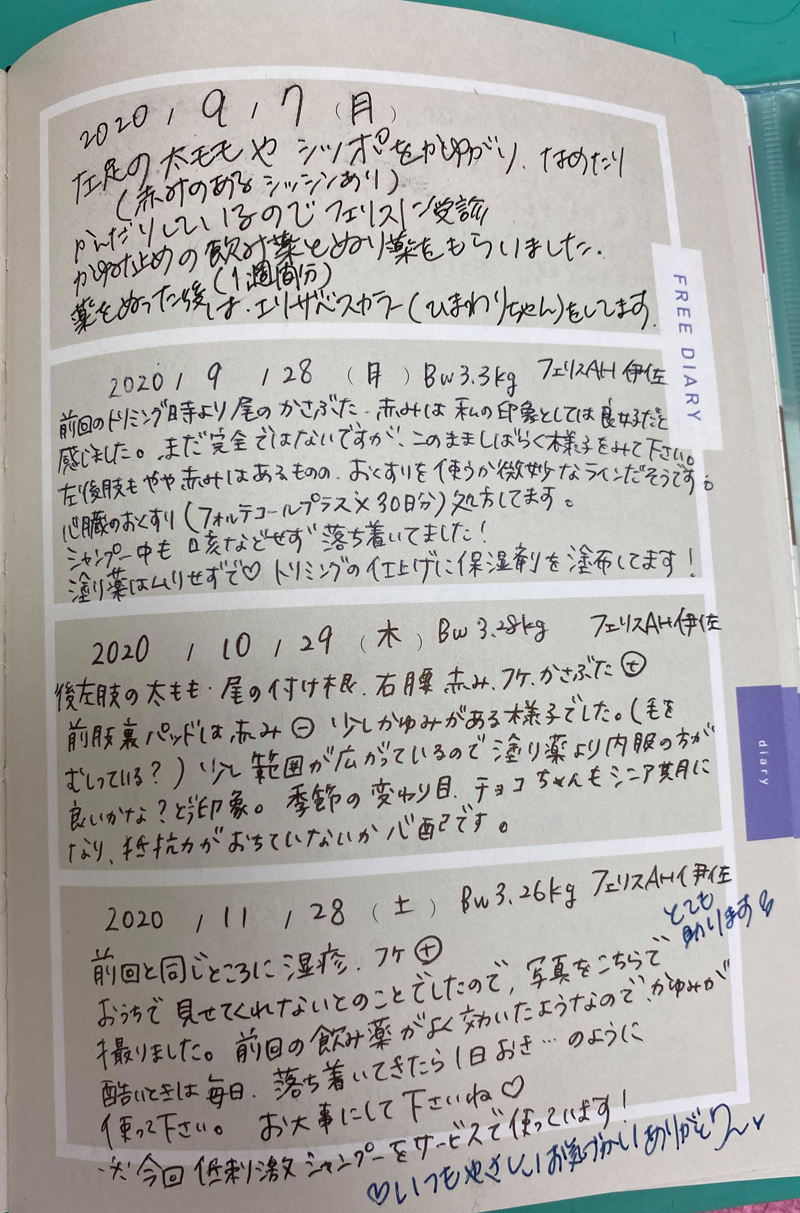 2020 / 9 / 7 (月)
左足の太ももや シッポをかゆがり、なめたり
(赤みのある シッシンあり)
かんだりしているのでフェリスに受診
かゆみ止めの飲み薬とぬり薬をもらいました.
(1週間分)
薬をぬった後は.エリザベスカラー(ひまわりちゃん)をしてます.
FREE DIARY
2020 / 9 / 28 (月) Bw 3.3kg フェリスAH 伊佐
前回のトリミング時より尾のかさぶた・赤みは 私の印象としては良好だと
感じました。まだ完全ではないですが、このまましばらく様子をみて下さい。
左後肢もやや赤みはあるものの、おくすりを使うか微妙なラインだそうです。
心臓のおくすり(フォルテコールプラス × 30日分)処方してます。
シャンプー中も 咳などせず 落ち着いてました!
塗り薬はムリせずで♡ トリミングの仕上げに保湿剤を塗布してます!
2020 / 10 / 29 (木) Bw 3.28kg フェリスAH 伊佐
後左肢の太もも・尾の付け根、右腰 赤み、フケ、かさぶた ⊕
前肢裏パッドは赤み ⊖ 少しかゆみがある様子でした。(毛を
むしっている?) 少し範囲が広がっているので 塗り薬より内服の方が
良いかな?という印象。 季節の変わり目、チョコちゃんもシニア期に
なり、抵抗力がおちていないか 心配です。
2020 / 11 / 28 (土) Bw 3.26kg フェリスAH 伊佐
とても
助ります
前回と同じところに湿疹、フケ ⊕
おうちで見せてくれないとのことでしたので、写真をこちらで
撮りました。前回の飲み薬がよく効いたようなので、かゆみが
酷いときは毎日、落ち着いてきたら 1日おき…のように
使って下さい。 お大事にして下さいね♡
※ 今回 低刺激シャンプーをサービスで使っています!
♡いつもやさしいお気づかいありがとワ〜ン♥
diary